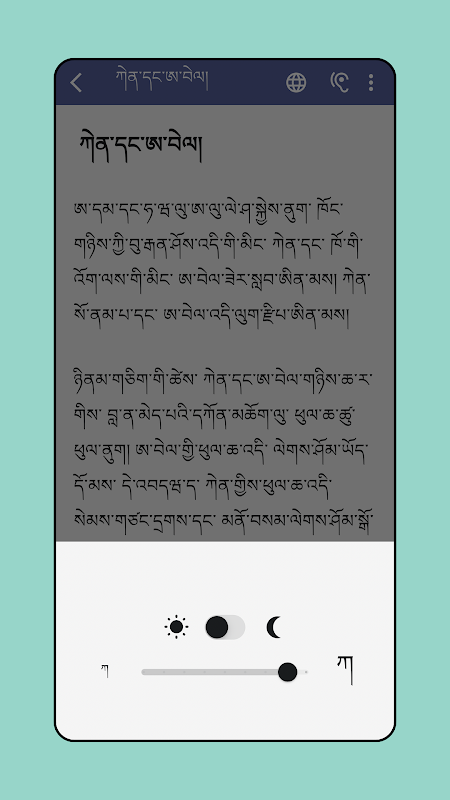 ཀེན་དང་ཨ་བེལ།
ཀེན་དང་ཨ་བེལ།
ཨ་དམ་དང་ཧ་ཝ་ལུ་ཨ་ལུ་ལེ་ཤ་སྐྱེས་ནུག་ ཁོང་
གཉིས་ཀྱི་བུ་རྒན་ཤོས་འདི་གི་མིང་ ཀེན་དང་ ཁོ་གི་
འོག་ལས་གི་མིང་ ཨ་བེལ་ཟེར་སླབ་ཨིན་མས། ཀེན་
སོ་ནམ་པ་དང་ ཨ་བེལ་འདི་ལུག་རྫིཔ་ཨིན་མས།
ཉིནམ་གཅིག་གི་ཚེས་ ཀེན་དང་ཨ་བེལ་གཉིས་ཆ་ར་
གིས་ བླ་ན་མེད་པའི་དཀོན་མཆོག་ལུ་ ཕུལ་ཆ་ཚུ་
ཕུལ་ནུག། ཨ་བེལ་གྱི་ཕུལ་ཆ་འདི་ ལེགས་ཤོམ་ཡོད་
དོ་མས་ དེ་འབདཝ་ད་ ཀེན་གྱིས་ཕུལ་ཆ་འདི་
སེམས་གཙང་དྲགས་དང་ མནོ་བསམ་ལེགས་ཤོམ་སྒོ་
ཀ
ཀ